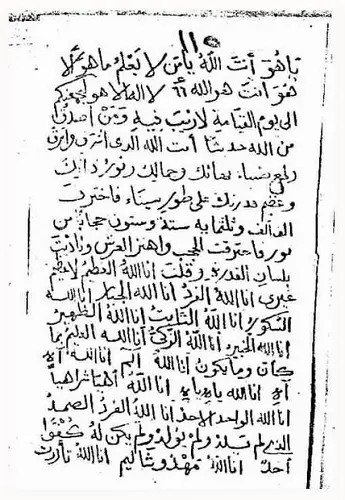 يا هو أنت الله يا من لا يعلم ما هو إلا
هو أنت هو الله الذي لا اله الا هو ليجمعنكم
الى يوم القيامة لا ريب فيه ومن أصدق
من الله حديثا أنت الله الذى أشرق وابرق
ولمع ضياء بهائك وجمالك ونور ذاتك
وعظيم قدرتك على طور سيناء فاخترقت
الف الف وثلثمايه ستة وستون حجابا من
نور فاحترقت الحجب واهتز العرش وناديت
بلسان القدرة وقلت انا الله العظيم لا عظيم
غيرى انا الله الفرد انا الله الجبار انا الله
الشكور انا الله الثابت انا الله الظهير
انا الله الخبير انا الله الزكى انا الله العليم بما
كان وما يكون انا الله اليم انا الله ايه
ايه انا الله يايه يايه انا الله أهيا شراهيا
انا الله الواحد الاحد انا الله الفرد الصمد
الذى لم يلد ولم يولد ولم يكن له كفوا
أحد انا الله مهذوشاليم انا الله